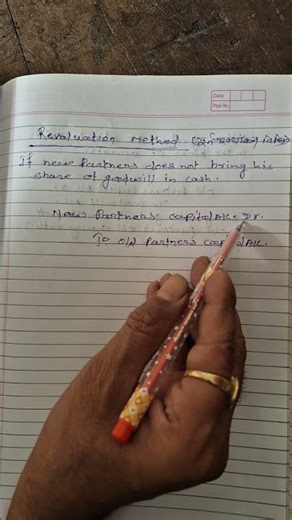 Date
Page No
Revaluation Method (पुनर्मूल्यांकन विधि)
If new Partners does not bring his
share of goodwill in cash.
New Partners capital A/c - Dr.
To old Partners Capital A/c.